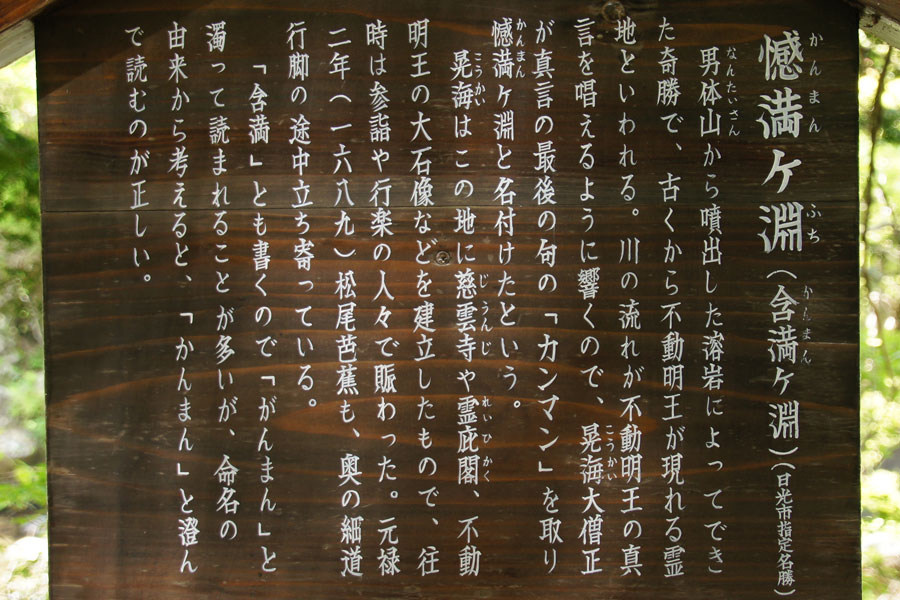 憾満ヶ淵（含満ヶ淵）（日光市指定名勝）
かんまん ふち かんまん
男体山から噴出した溶岩によってでき
なんたいさん
た奇勝で、古くから不動明王が現れる霊
地といわれる。川の流れが不動明王の真
言を唱えるように響くので、晃海大僧正
こうかい
が真言の最後の句の「カンマン」を取り
憾満ヶ淵と名付けたという。
かんまん
晃海はこの地に慈雲寺や霊庇閣、不動
こうかい じうんじ れいひかく
明王の大石像などを建立したもので、往
時は参詣や行楽の人々で賑わった。元禄
二年（一六八九）松尾芭蕉も、奥の細道
行脚の途中立ち寄っている。
「含満」とも書くので「がんまん」と
濁って読まれることが多いが、命名の
由来から考えると、「かんまん」と澄ん
で読むのが正しい。